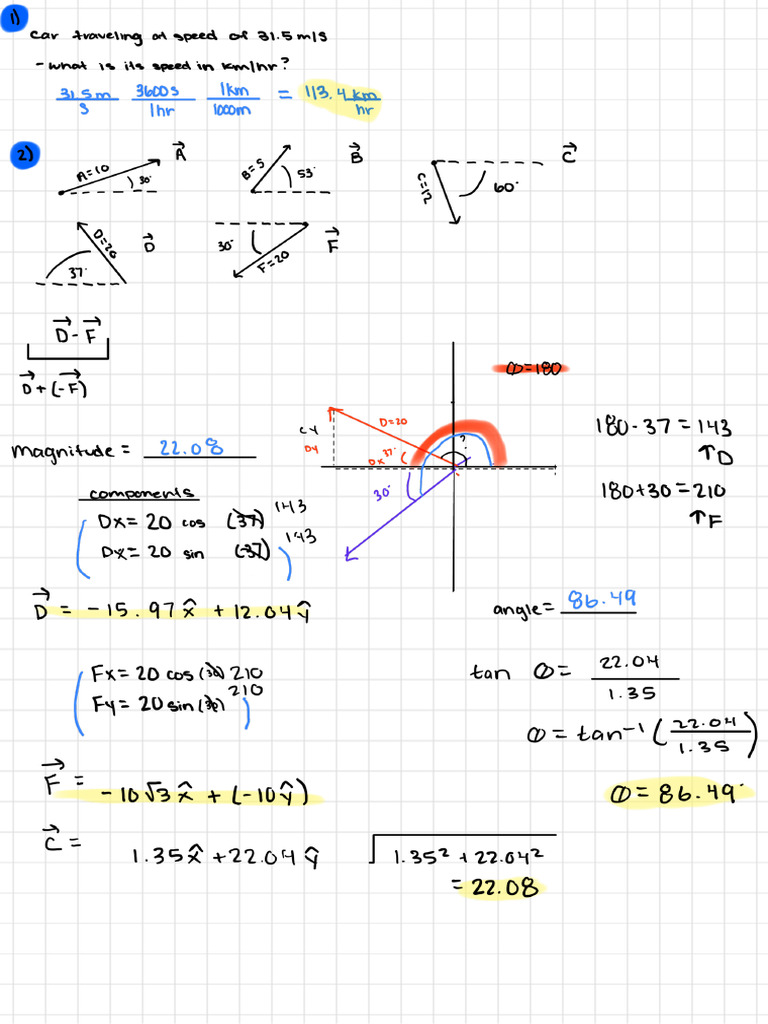 1)
car traveling at speed of 31.5 m/s
- what is its speed in km/hr?
31.5m/s 3600s/1hr 1km/1000m = 113.4 km/hr
2)
A=10 30° A⃗
B=5 53° B⃗
C=12 60° C⃗
D=20 37° D⃗
30° F=20 F⃗
D⃗ - F⃗
D⃗ + (-F⃗)
Θ=180
D=20
CY
DY
DX 37°
?
30°
180 - 37 = 143
↑D
180 + 30 = 210
↑F
magnitude = 22.08
components
Dx = 20 cos (37) 143
Dy = 20 sin (37) 143
D⃗ = -15.97x̂ + 12.04ŷ
angle = 86.49
Fx = 20 cos (30) 210
Fy = 20 sin (30) 210
tan Θ = 22.04/1.35
Θ = tan⁻¹ (22.04/1.35)
F⃗ = -10√3 x̂ + (-10ŷ)
Θ = 86.49°
C⃗ = 1.35x̂ + 22.04ŷ
√1.35² + 22.04²
= 22.08